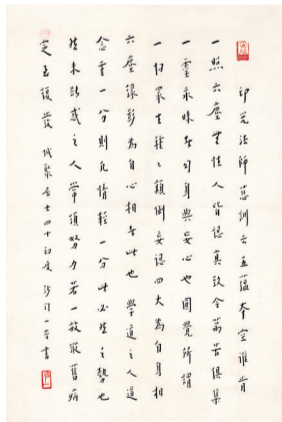 印光法師慈訓云五蘊本空誰肯
一照六塵無性人皆認真致令萬苦俱集
一靈永昧者身與妄心也圓覺所謂
一切眾生種種顛倒妄認四大為自身相
六塵緣影為自心相者此也學道之人道
念重一分則凡情輕一分此必然之勢也
然未證之人常須努力若一放縱舊病
定至復發 居士四十初度 沙門一音書